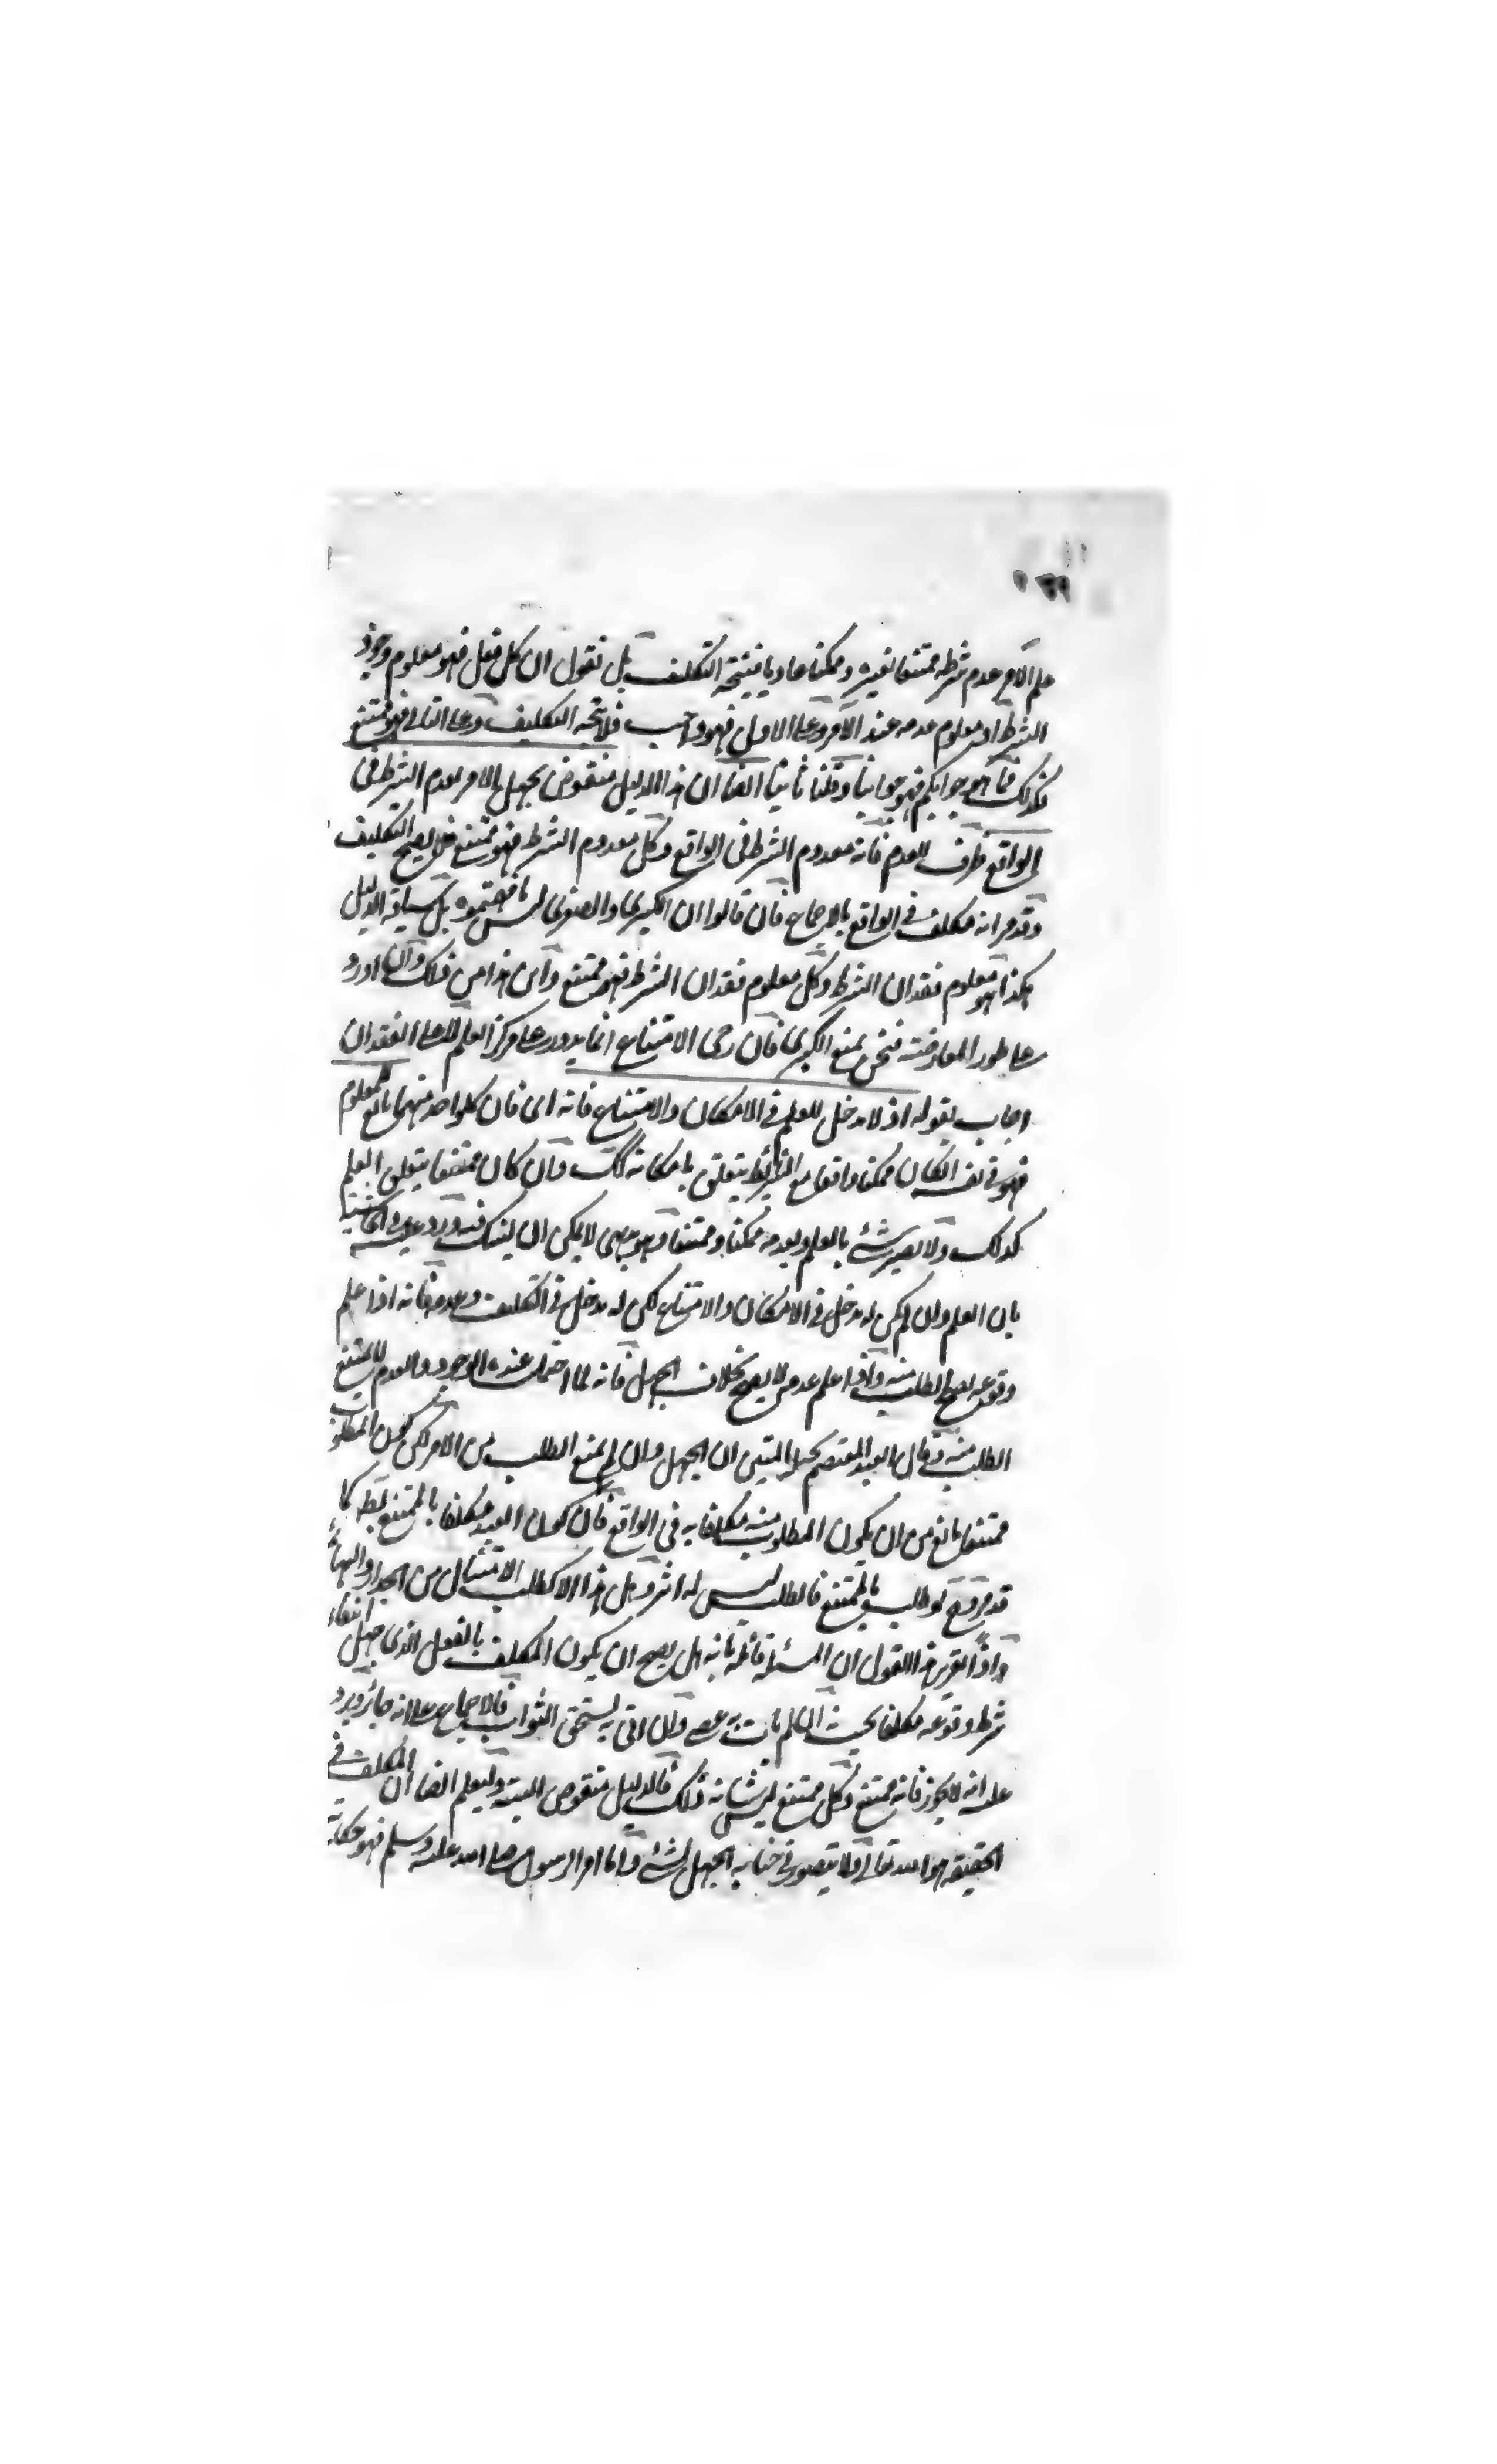 علم الآمر عدم شرطه ممتنعا لغيره وممكنا عاديا فيتجه التكليف بل نقول ان كل فعل فهو معلوم وجود
الشرط او معلوم عدمه عند الآمر وعلى الاول فهو واجب فلا يتجه التكليف وعلى الثاني فهو ممتنع
كذلك فما هو جوابكم فهو جوابنا وقلنا ثانيا ايضا ان هذا الدليل منقوض بجهل الامر بعدم الشرط في
الواقع ظرف للعدم فانه معدوم الشرط في الواقع وكل معدوم الشرط فهو ممتنع فلا يصح التكليف
وقد مر انه مكلف في الواقع بالاجماع فان قالوا ان الكبرى والصغرى ليس ما فهمتموه بل سياقة الدليل
هكذا هو معلوم فقدان الشرط وكل معلوم فقدان الشرط فهو ممتنع واين هذا من ذلك وان اورد
على طور المعارضة فنحن نمنع الكبرى فان رحى الامتناع انما يدور على مركز العلم لا على الفقدان
اجاب بقوله اذ لا مدخل للعلم في الامكان والامتناع فانه اى فان كلواحد منهما تابع للمعلوم
فهو في نفسه ان كان ممكنا واقعا مع الشرائط يتعلق بامكانه كك وان كان ممتنعا يتعلق العلم
كذلك ولا يصير شئ بالعلم وبعدمه ممكنا وممتنعا وهو بديهى لا يمكن ان يشك فيه ورد عليه في الحاشية
بان العلم وان لم يكن له مدخل في الامكان والامتناع لكن له مدخل في التكليف وعدمه فانه اذا علم
وقوعه يصح الطلب منه واذا علم عدمه لا يصح بخلاف الجهل فانه لما احتمل عنده الوجود والعدم لا يمتنع
الطلب منه وقال العبد المعتصم بحبله المتين ان الجهل وان لم يمنع الطلب من الامر لكن كون المطلوب
ممتنعا مانع من ان يكون المطلوب منه مكلفا به في الواقع فان كون العبد مكلفا بالممتنع بط كما
قد مر وقع لو طلب بالممتنع فالطلب ليس له اثر وهل هذا الا كطلب الامتثال من الجدار والبهائم
واذا تقرر هذا القول ان المسئلة قائلة بانه هل يصح ان يكون المكلف بالفعل الذى جهل انتفاء
شرط وقوعه مكلفا بحيث ان لم يات به عصى وان اتى به يستحق الثواب فالاجماع على انه جائز ويرد
عليه انه لا يجوز فانه ممتنع وكل ممتنع ليس شانه ذلك فالدليل منقوض البتة وليعلم ايضا ان المكلف في
الحقيقة هو الله تعالى ولا يتصور في جنابه الجهل بشئ واما امر الرسول صلى الله عليه وسلم فهو حكاية